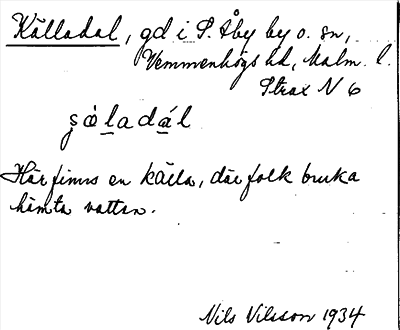 Källadal, gd i S. Åby by o. sn,
Vemmenhögs hd, Malm. l.
Strax N 6
şɷ̀ladál
Här finns en källa, där folk bruka
hämta vattan.
Nils Nilsson 1934